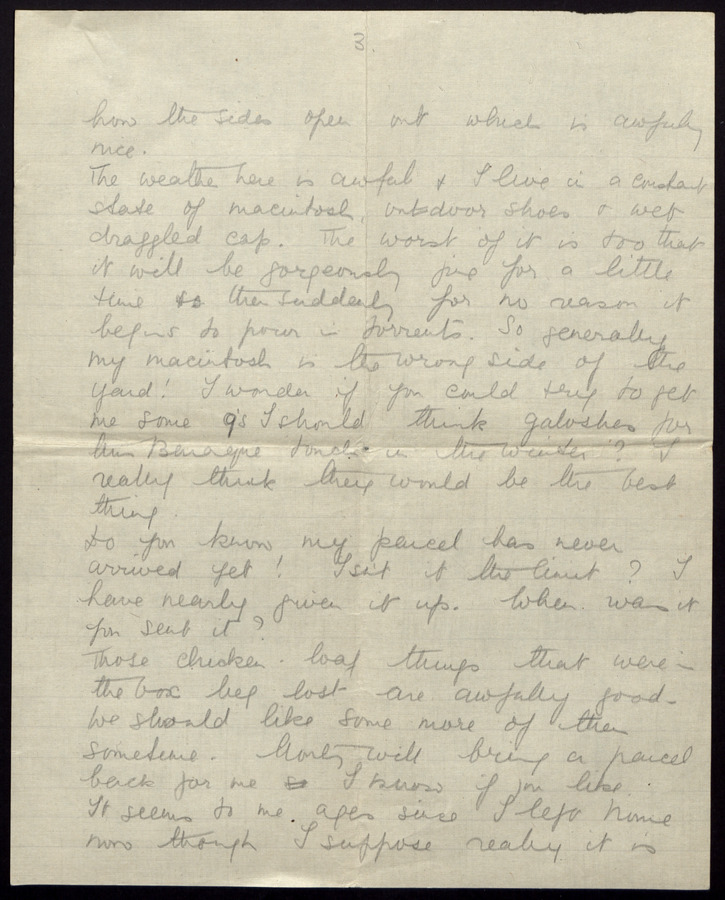 3.
how the sides open out which is awfully
nice.
The weather here is awful & I live in a constant
state of macintosh, outdoor shoes & wet
draggled cap. The worst of it is too that
it will be gorgeously fine for a little
time so then suddenly for no reason it
begins to pour in torrents. So generally
my macintosh is the wrong side of the
yard! I wonder if you could try to get
me some 9's I should think galoshes for
in the winter? I
really think they would be the best
thing.
Do you know my parcel has never
arrived yet! Isn't it the limit? I
have nearly given it up. When was it
you sent it?
Those chicken-loaf things that were in
the box bef last are awfully good.
We should like some more of them
sometime. will bring a parcel
back for me I know if you like.
It seems to me ages since I left home
now though I suppose really it is